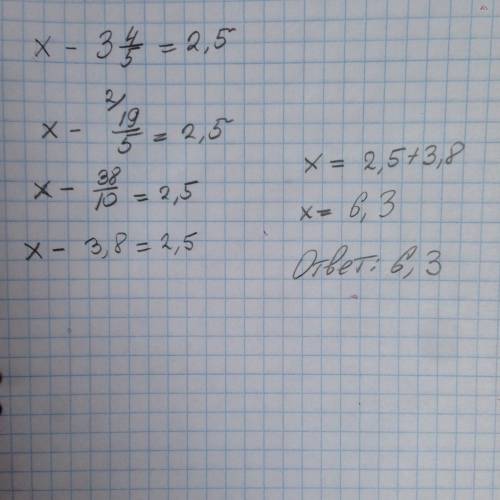 x - 3 4/5 = 2,5
x - ²⁄ 19/5 = 2,5
x - 38/10 = 2,5
x - 3,8 = 2,5
x = 2,5 + 3,8
x = 6,3
Ответ: 6,3